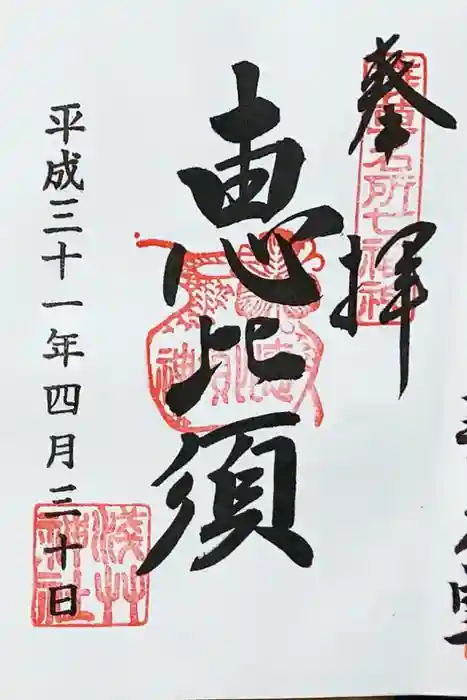 奉拝
浅草名所七福神
恵比須
平成三十一年四月三十日
浅草神社